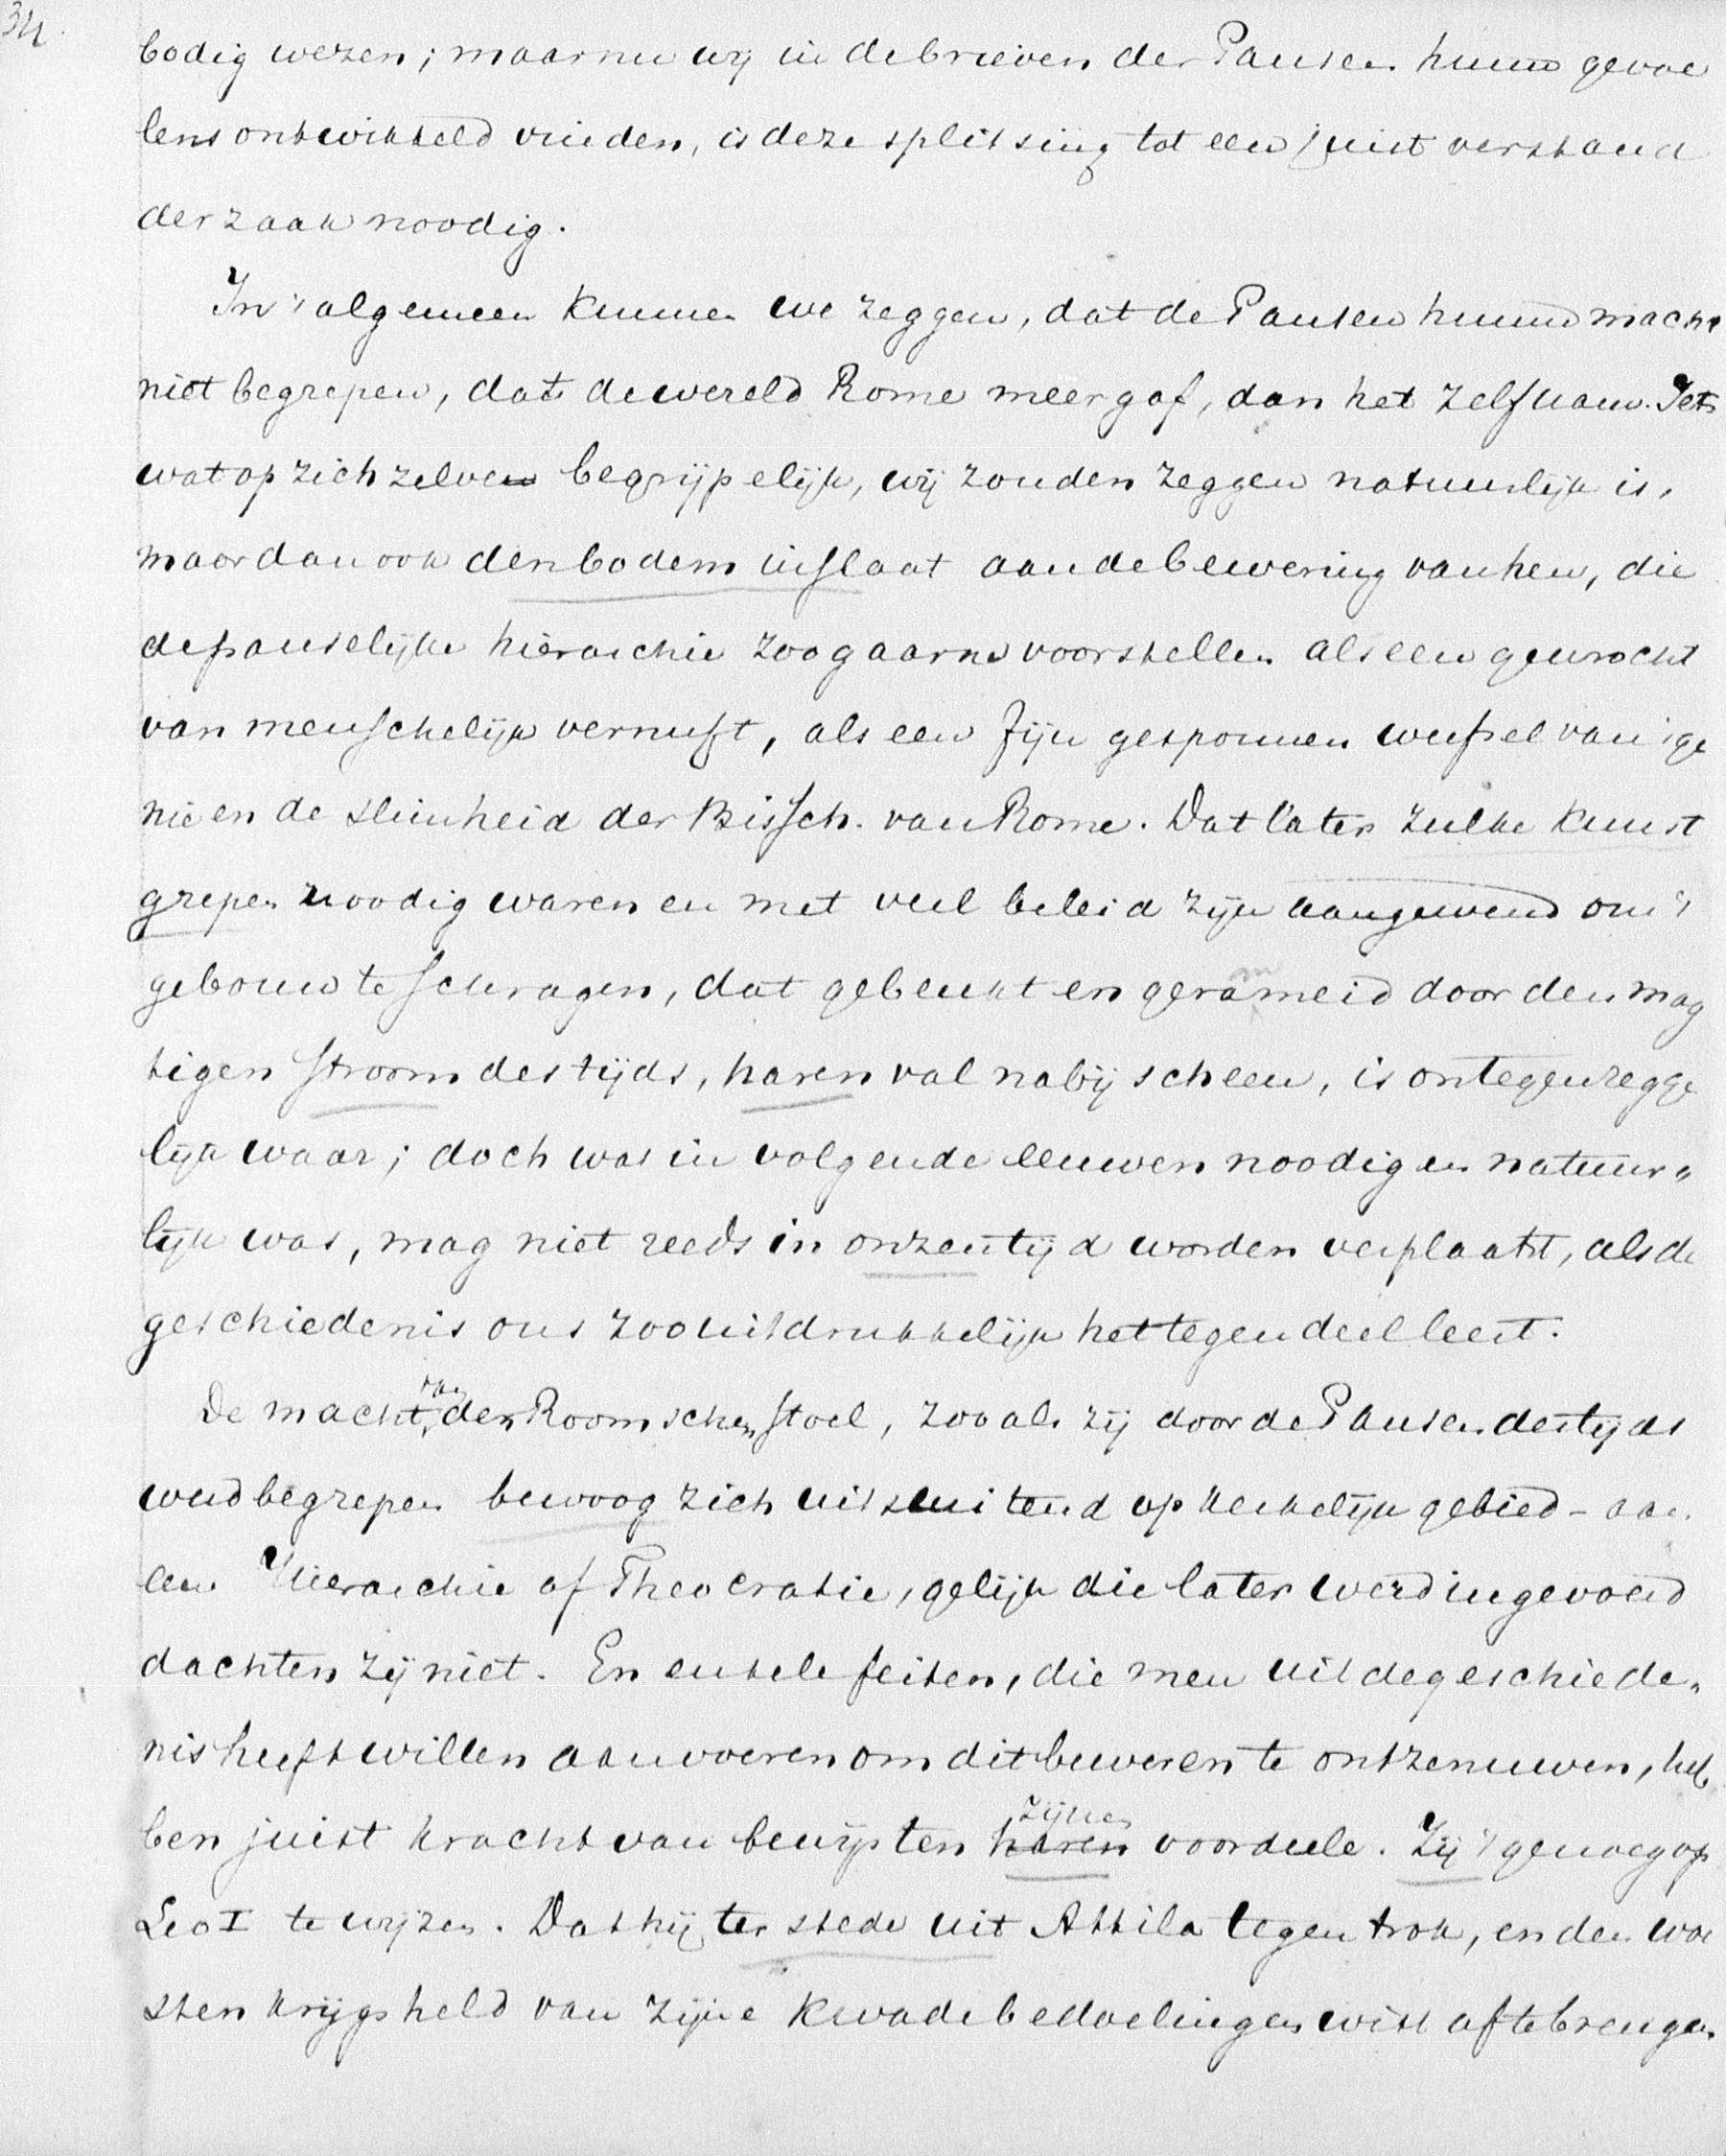 34.
bodig wezen; maar nu wij in de brieven der Pausen hunne gevoe
lens ontwikkeld vinden, is deze splitsing tot een juist verstand
der zaak noodig.
In 't algemeen kunnen we zeggen, dat de Pausen hunne macht
niet begrepen, dat de wereld Rome meer gaf, dan het zelf nam. Iets
wat op zich zelven begrijpelijk, wij zouden zeggen natuurlijk is,
maar dan ook den bodem inslaat aan de bewering van hen, die
de pauselijke hierarchie zoo gaarne voorstellen als een gewrocht
van menschelijk vernuft, als een fijn gesponnen weefsel van 't ge
nie en de slimheid der Bissch. van Rome. Dat later zulke kunst
grepen noodig waren en met veel beleid zijn aangewend om 't
gebouw te schragen, dat gebeukt en gerammeid door den mag
tigen stroom des tijds, haren val nabij scheen, is ontegenzegge
lijk waar; doch wat in volgende eeuwen noodig en natuur„
lijk was, mag niet reeds in onzen tijd worden verplaatst, als de
geschiedenis ons zoo uitdrukkelijk het tegendeel leert.
De macht van den Roomschen stoel, zooals zij door de Pausen destijds
werd begrepen bewoog zich uitsluitend op kerkelijk gebied - aan
een Hierarchie of Theocratie, gelijk die later werd ingevoerd
dachten zij niet. En enkele feiten, die men uit de geschiede„
nis heeft willen aanvoeren om dit beweren te ontzenuwen, heb
ben juist kracht van bewijs ten haren zijnen voordeele. Zij 't genoeg op
Leo I te wijzen. Dat hij ter stede uit Attila tegen trok, en den woe
sten krijgsheld van zijne kwade bedoelingen wist af te brengen